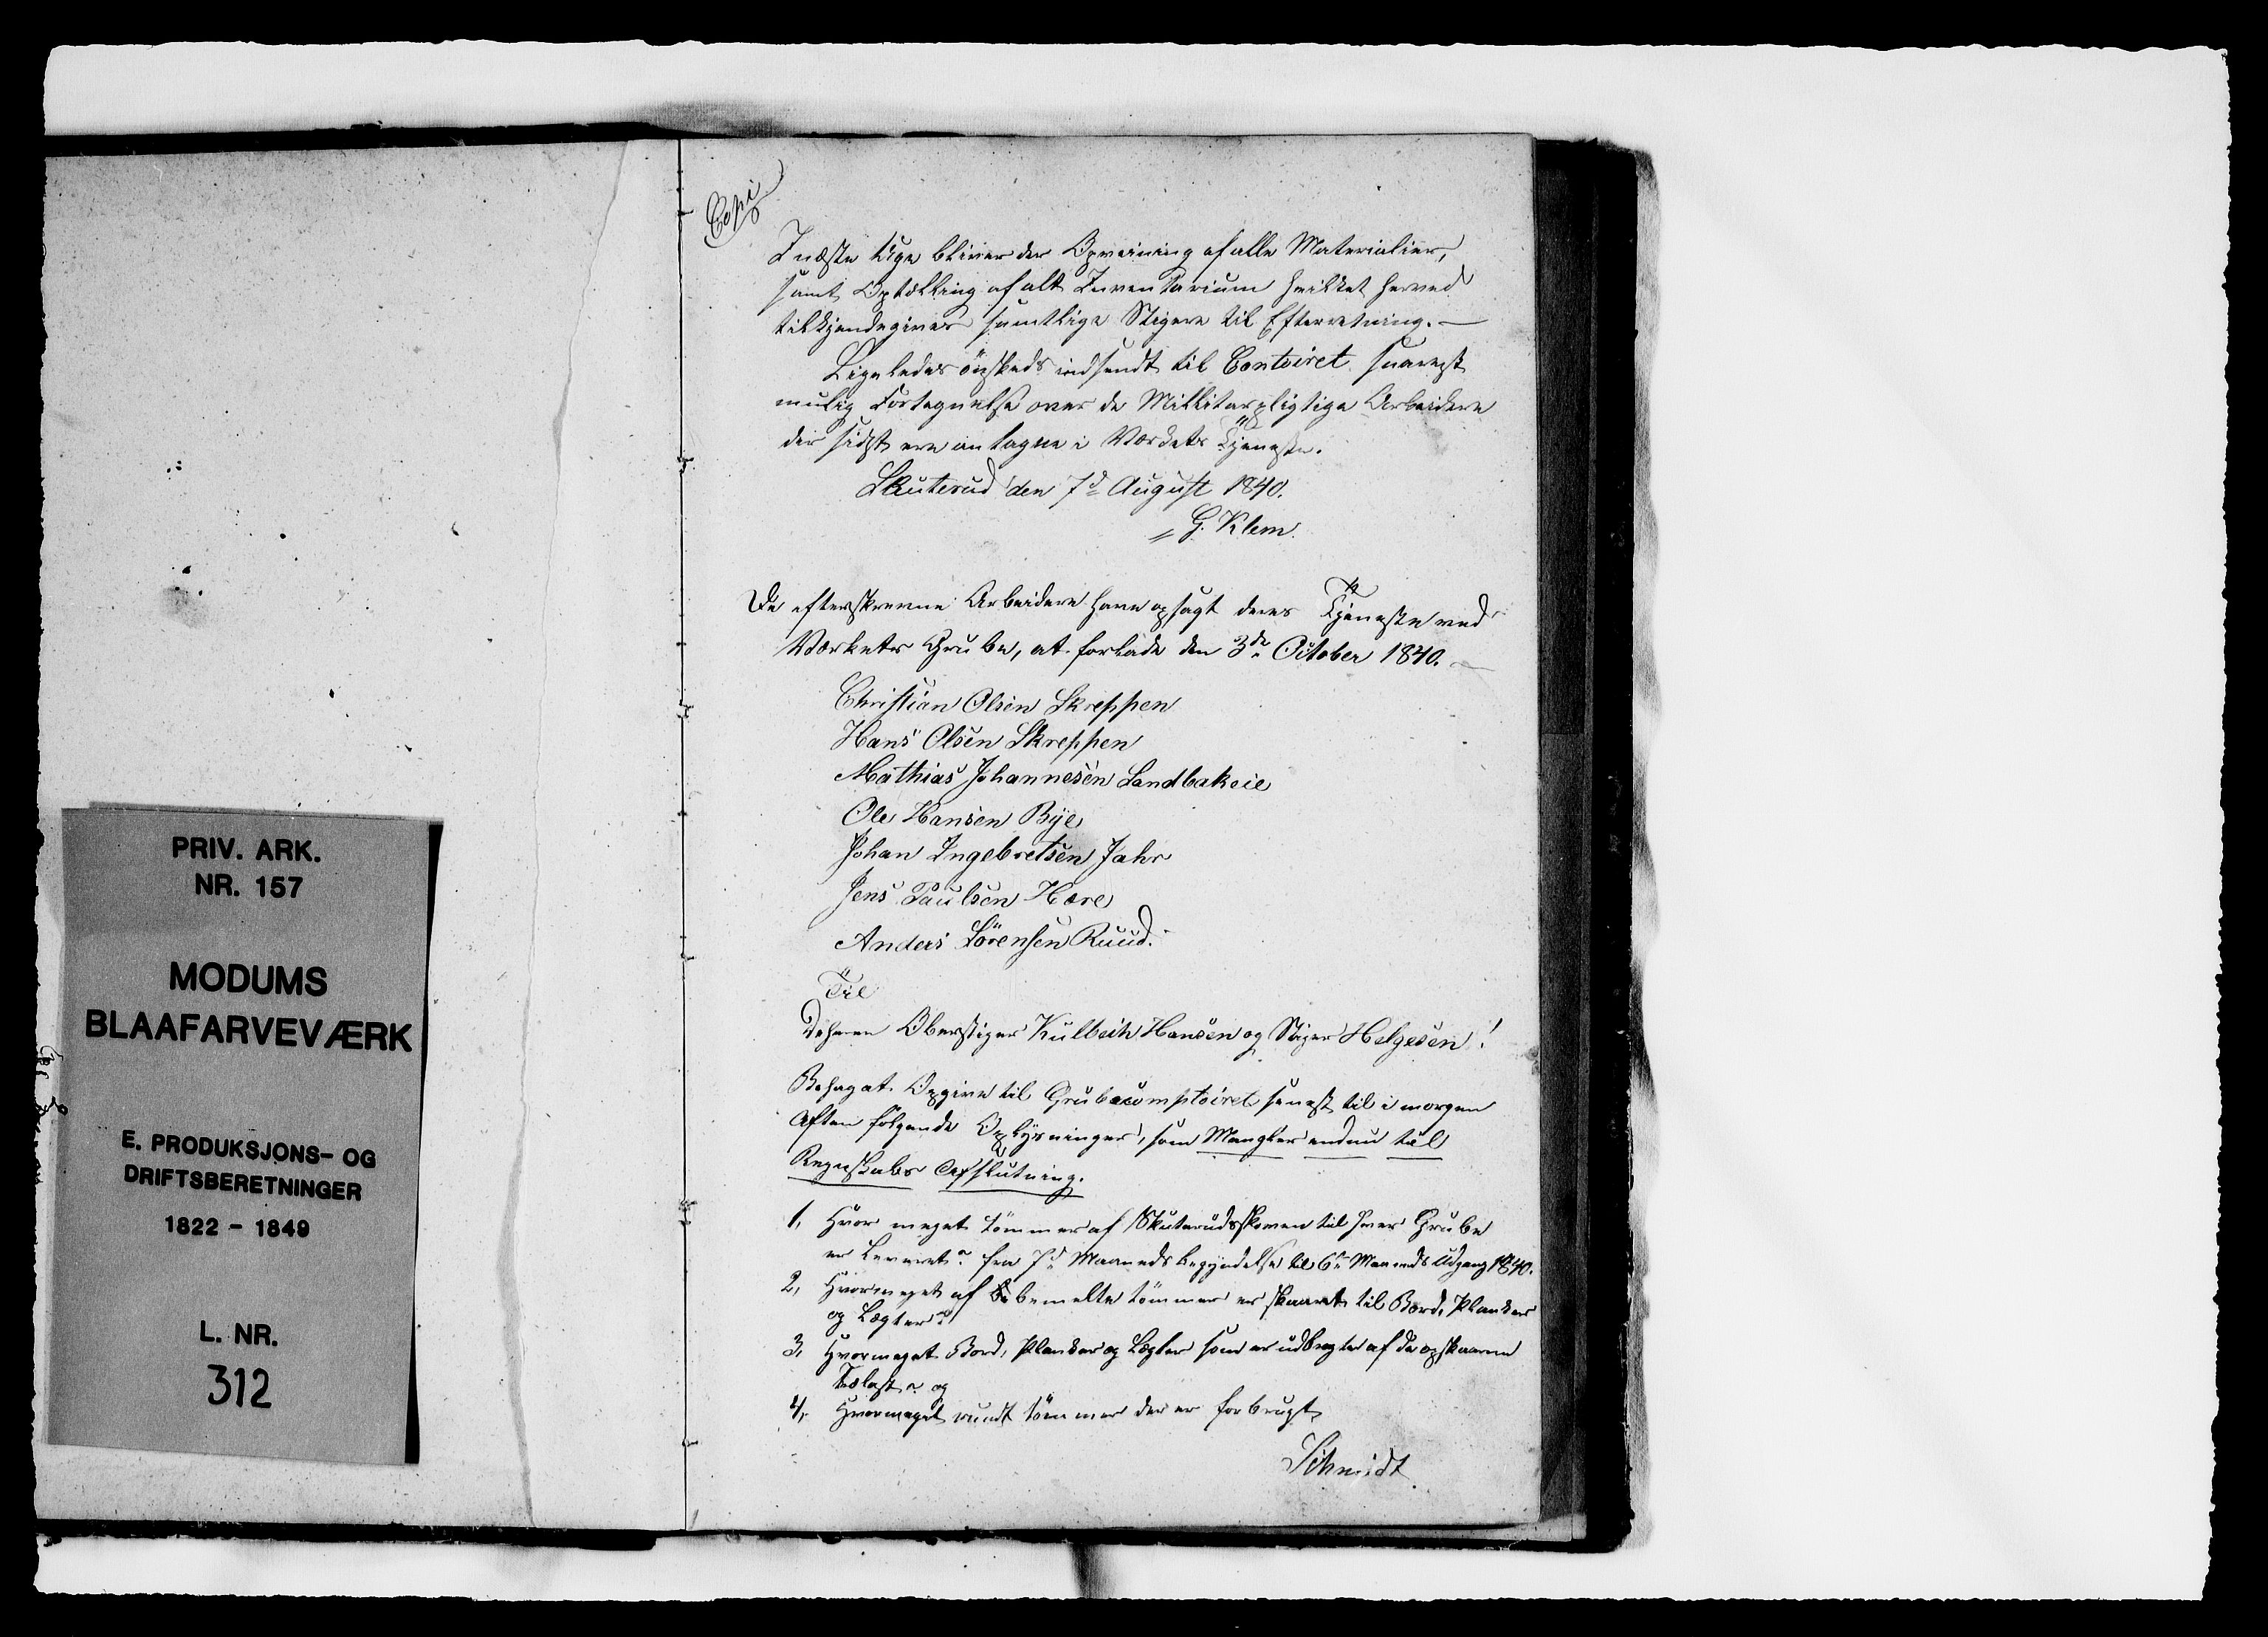 PRIV. ARK.
NR. 157
MODUMS
BLAAFARVEVÆRK
E. PRODUKSJONS- OG
DRIFTSBERETNINGER
1822 - 1849
L. NR.
312
Copi
I næste Uge bliver der Opveining af alle Materialier,
samt Optælling af alt Inventarium hvilket herved
tilkjendegives samtlige Stigere til Efterretning. —
Ligeledes önskeds indsendt til Contoiret snarest
mulig Fortegnelse over de Militairpligtige Arbeidere
der sidst ere antagne i Værkets Tjeneste.
Skuterud den 7d August 1840.
G. Klem.
De efterskrevne Arbeidere have opsagt deres Tjeneste ved
Værkets Grube, at forlade den 3de October 1840. —
Christian Olsen Skreppen
Hans Olsen Skreppen
Mathias Johannesen Landbakeie
Ole Hansen Bye
Johan Ingebretsen Jahr
Jens Paulsen Hære
Anders Sörensen Ruud.
Til
Dehrrer Oberstiger Kulbech Hansen og Stiger Helgesen!
Behag at Opgive til Grubecomptoiret senest til i morgen
Aften fölgende Oplysninger, som Mangler endnu til
Regnskabs Afslutning.
1, Hvor meget tömmer af Skuterudskoven til hver Grube
er Leveret? fra 7d Maaneds begyndelse til 6te Maaneds Udgang 1840.
2, Hvormeget af bemelte tömmer er skaaret til Bord, Planker
og Lægter?
3, Hvormeget Bord, Planker og Lægter som er udbragte af de opskaarne
Trælast? og
4, Hvormeget rundt tömmer der er forbrugt
Schmidt